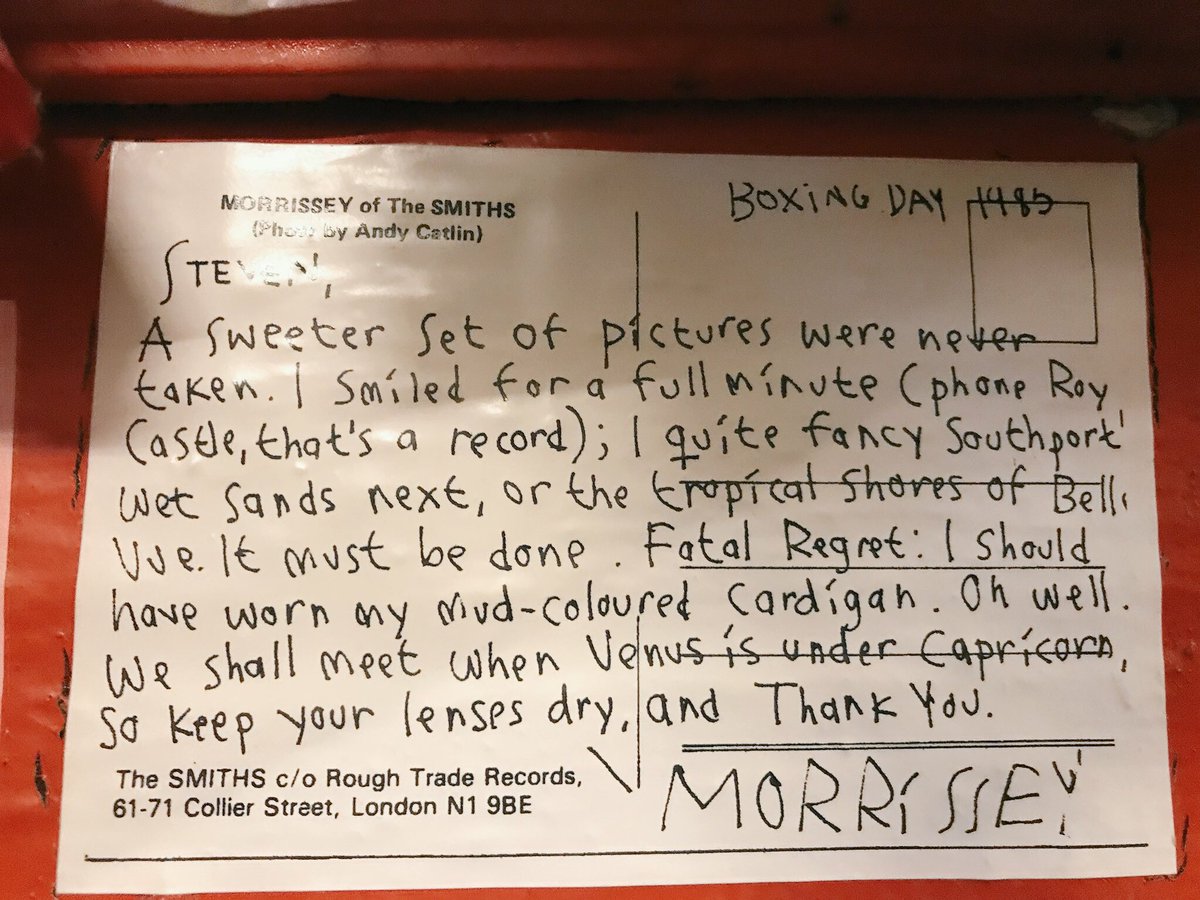 MORRISSEY of The SMITHS
(Photo by Andy Catlin)
BOXING DAY 1985
STEVEN,
A sweeter set of pictures were never
taken. I smiled for a full minute (phone Roy
Castle, that's a record); I quite fancy Southport'
wet sands next, or the tropical shores of Bell
Vue. It must be done. Fatal Regret: I should
have worn my mud-coloured cardigan. Oh well.
We shall meet when Venus is under Capricorn,
so keep your lenses dry, and Thank You.
The SMITHS c/o Rough Trade Records,
61-71 Collier Street, London N1 9BE
MORRISSEY